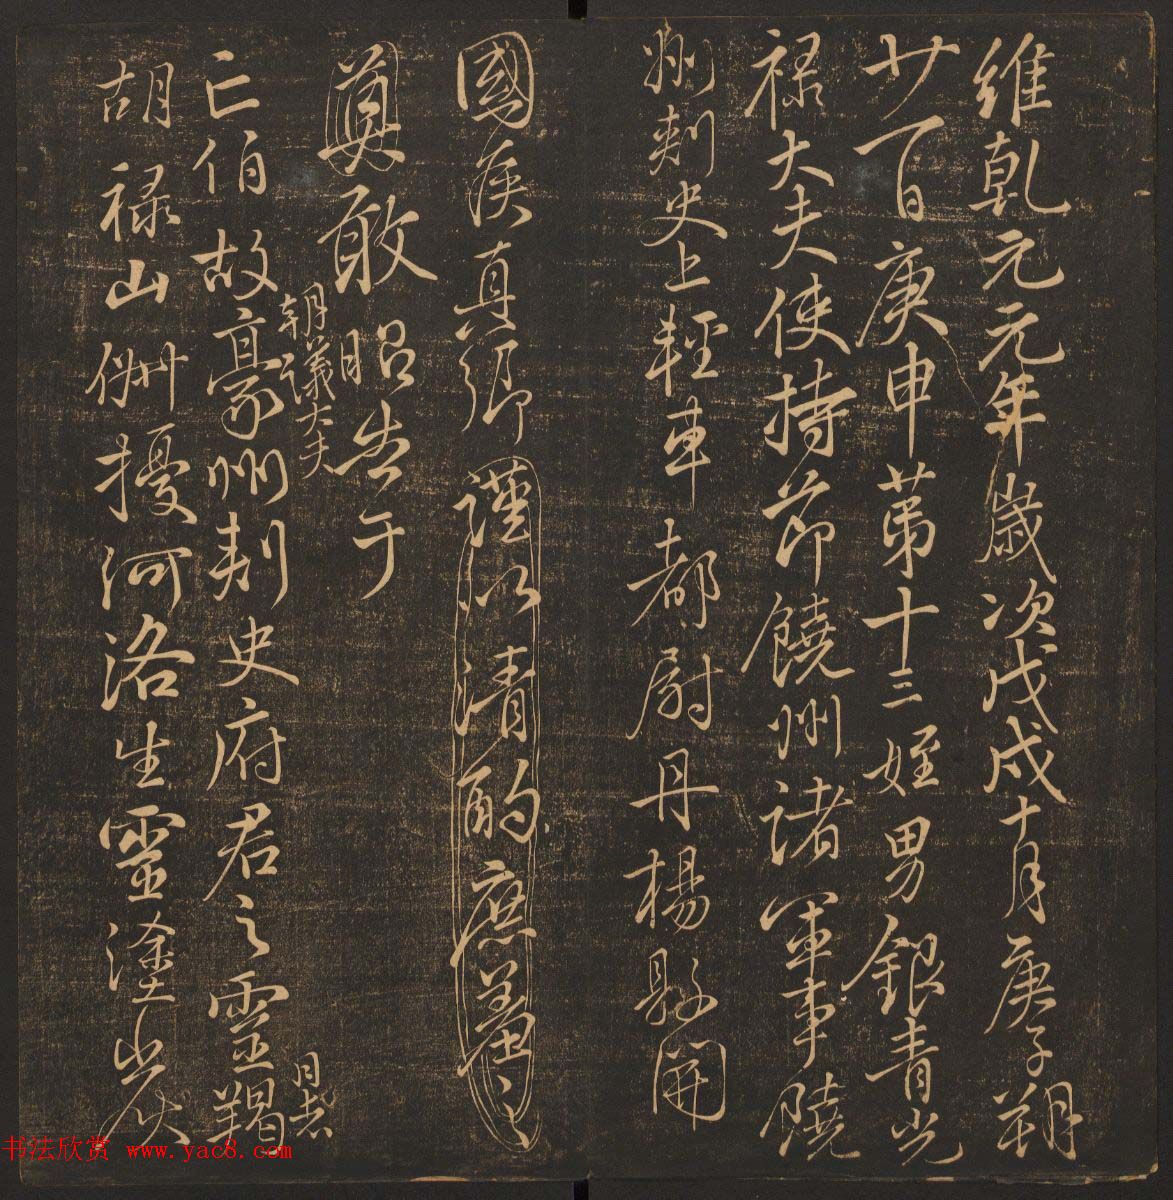 維乾元元年歲次戊戌十月庚子朔
廿一日庚申第十三姪男銀青光
禄大夫使持節饒州諸軍事饒
州刺史上輕車都尉丹楊縣開
國侯真卿謹以清酌庶羞之
奠敢昭告于
朝議大夫
日者
亡伯故豪州刺史府君之靈羯
胡禄山俶擾河洛生靈塗炭
书法欣赏 www.yac8.com